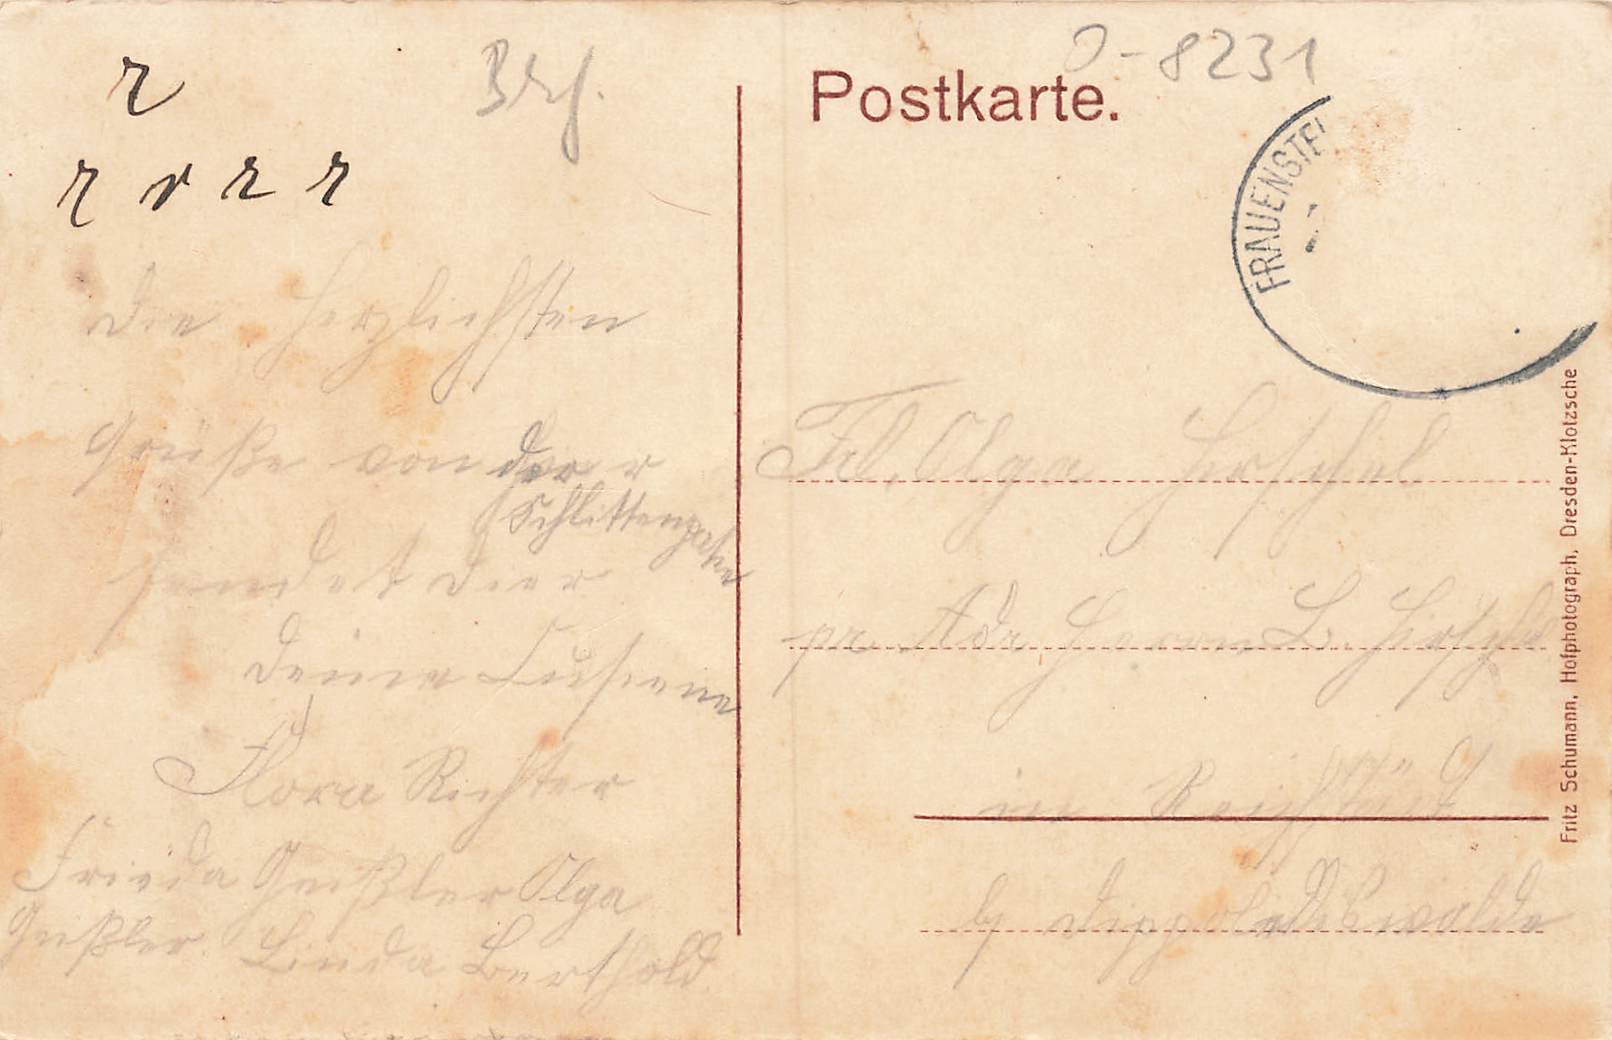 r
r v r r
O-8231
Postkarte.
FRAUENSTEI
Die Herzlichsten
Grüße von der
Schlittenpartie
sendet Dier
Deine Cusiene
Flora Richter
Frieda Geißler Olga
Geißler. Linda Berthold.
Frl. Olga Hirschel
pr Adr Herrn B. Hirschel
in Reichstädt
b/ Dippoldiswalde
Fritz Schumann, Hofphotograph, Dresden-Klotzsche